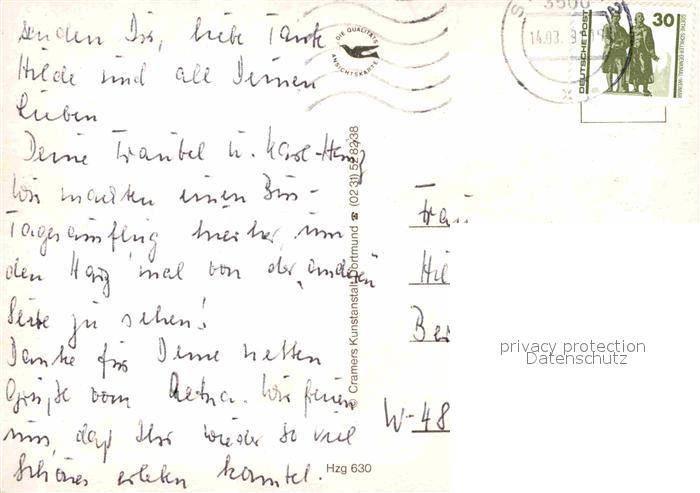 senden Dir, liebe Tante
Hilde und all Deinen
Lieben
Deine Traubel u. Karl-Heinz
Wir machten einen Bus-
Tagesausflug hierher, um
den Harz mal von der "anderen"
Seite zu sehen!
Danke für Deine netten
Grüße vom Aetna. Wir freuen
uns, daß Ihr wieder so viel
Schönes erleben konntet.
DIE QUALITÄTS
ANSICHTSKARTE
© Cramers Kunstanstalt Dortmund ☎ (02 31) 52 82 38
Hzg 630
3500
14.03.
DEUTSCHE POST
30
GOETHE-SCHILLER-DENKMAL · WEIMAR
Frau
Hil
Ber
W-48
privacy protection
Datenschutz